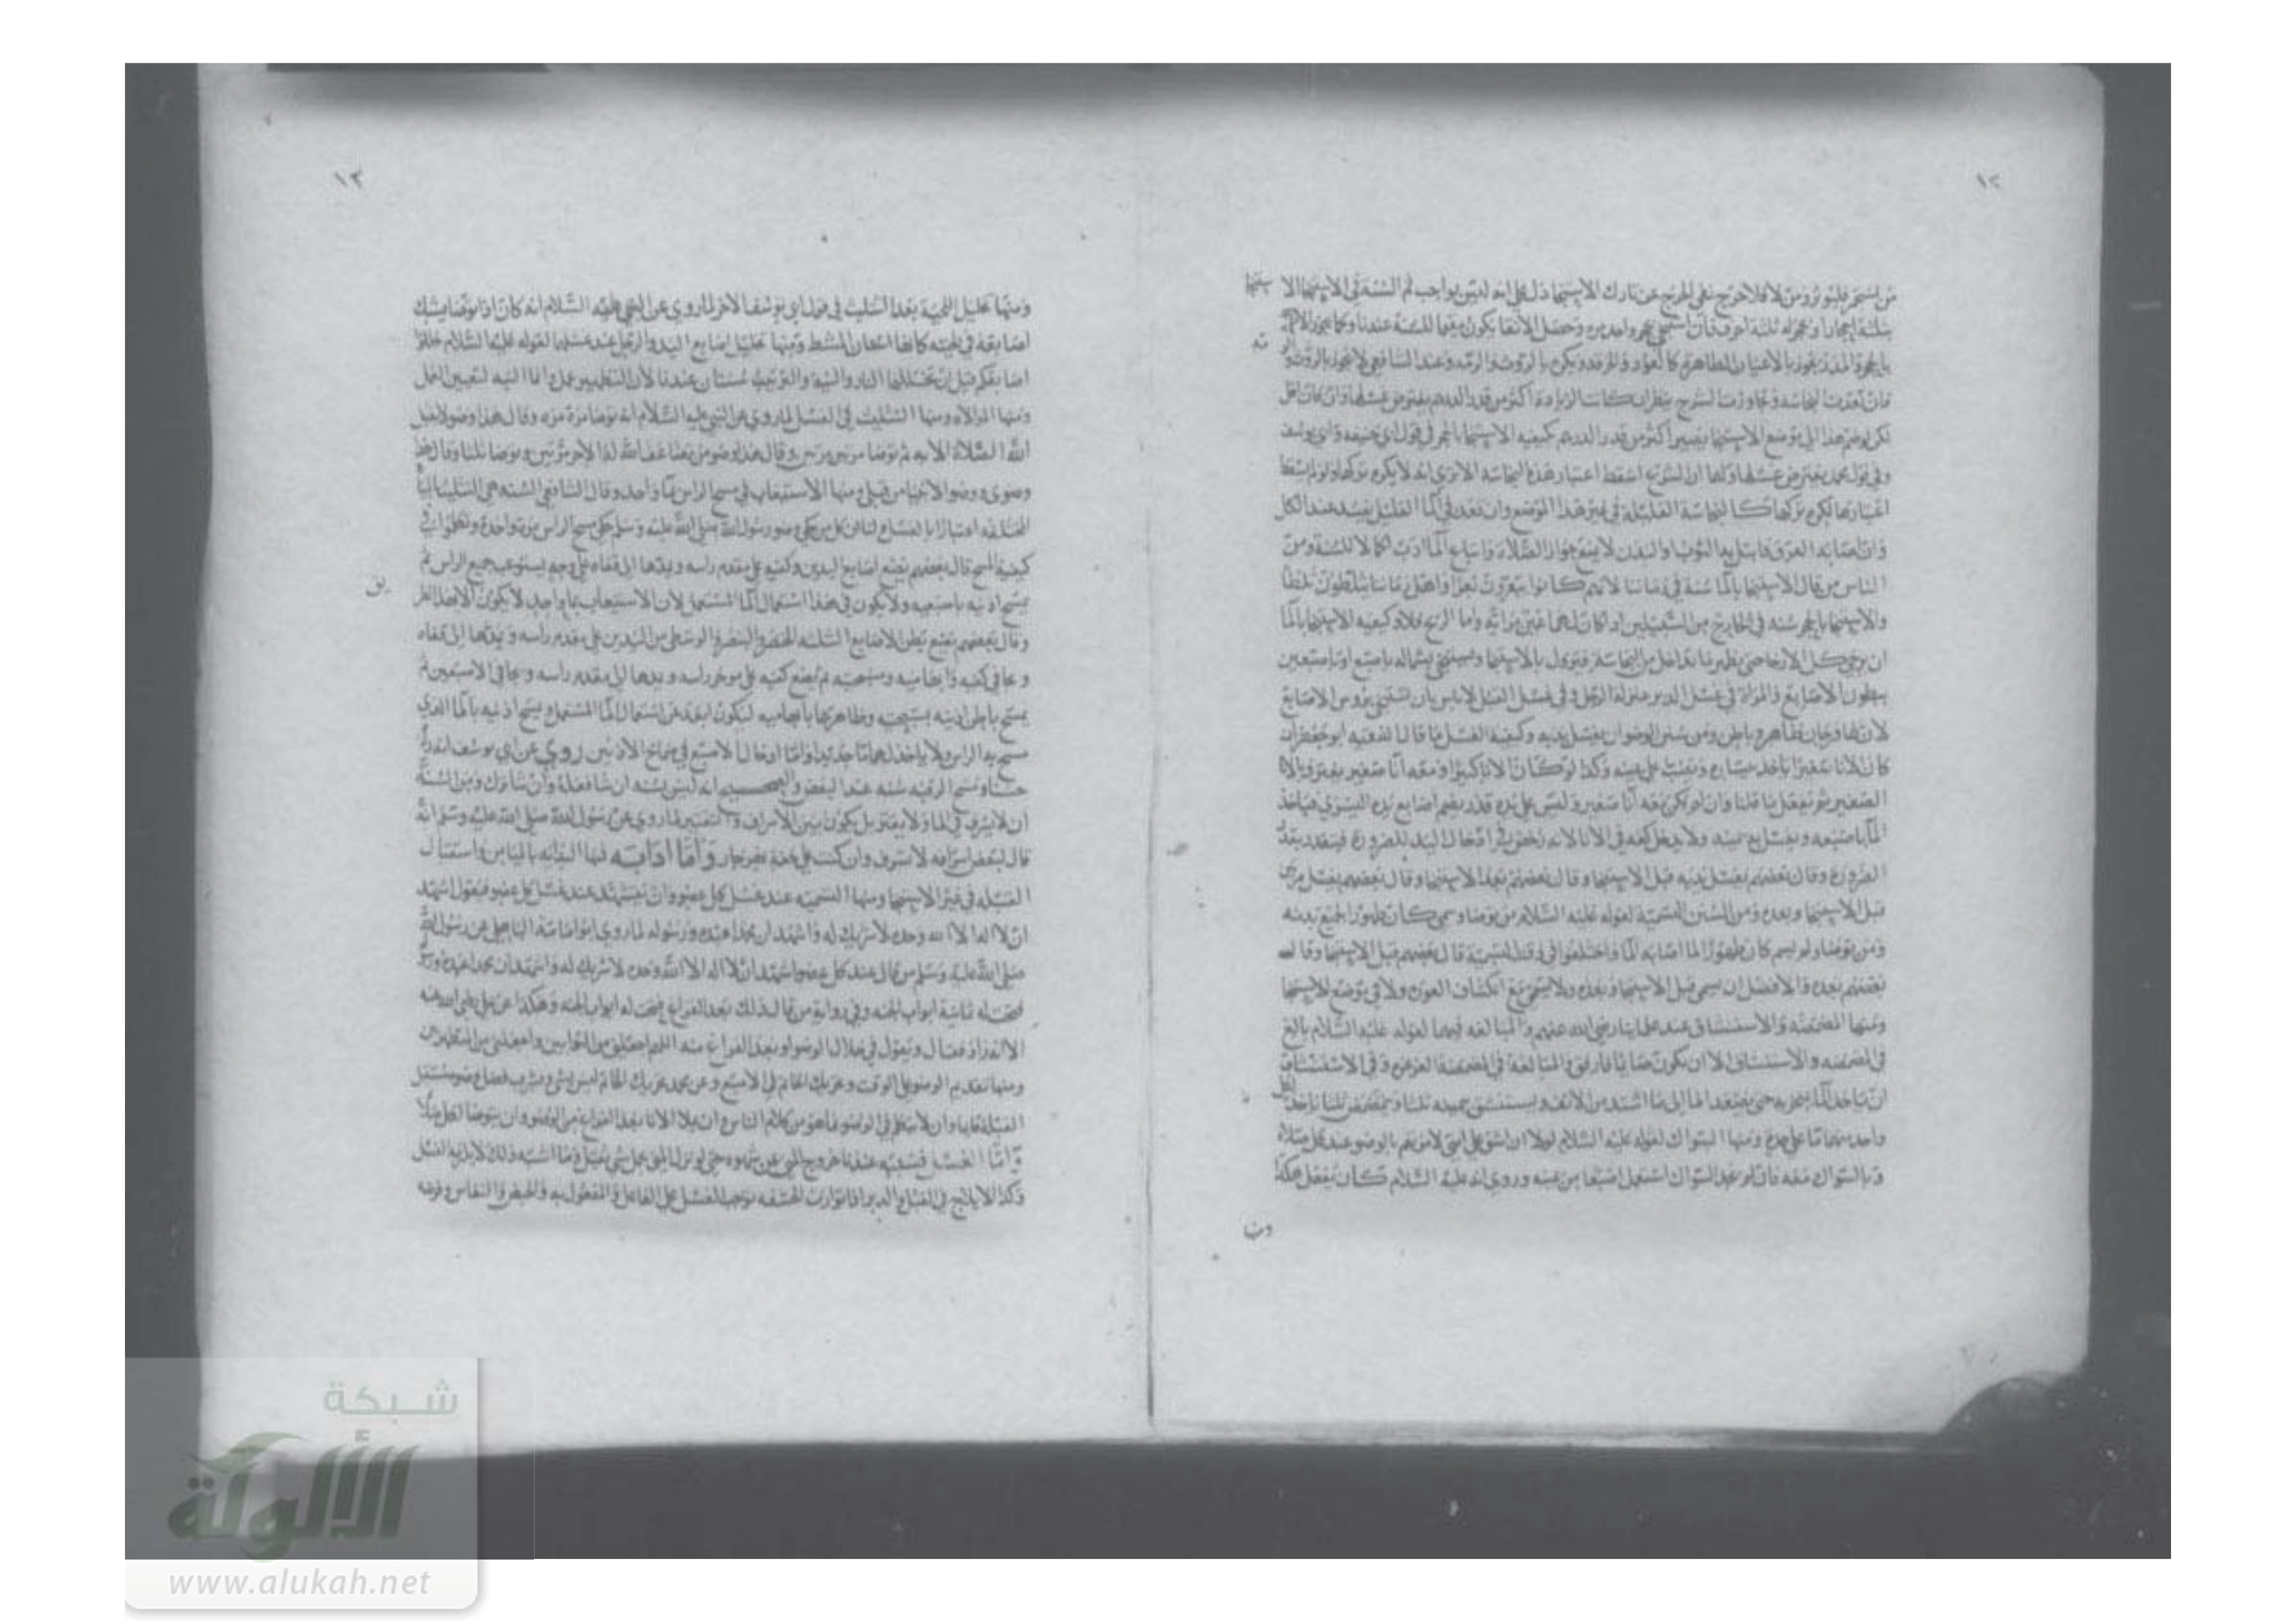 ١٢
من استجمر فليوتر ومن لا فلا حرج نفي الحرج عن تارك الاستنجا دل على انه ليس بواجب ثم السنة في الاستنجا
بثلثة احجار او بحجر له ثلثة احرف فان استنجى بحجر واحد وحصل الانقا يكون مقيما للسنة عندنا وكما يجوز
بالحجر والمدر يجوز بالاعيان الطاهرة كالعود والخرقة ويكره بالروث والرمه وعند الشافعي لا يجوز بالروث
فان تعدت النجاسة وتجاوزت الشرج ينظر ان كانت الزيادة اكثر من قدر الدرهم يفترض غسلها وان كان اقل
لكن لو ضم هذا الى موضع الاستنجا يصير اكثر من قدر الدرهم يكفيه الاستنجا بالحجر في قول ابي حنيفه وابي يوسف
وفي قول محمد يفترض غسلها ولهما ان الشرع اسقط اعتبار هذه النجاسة الا ترى انه لا يكره تركها ولو لم يسقط
اعتبارها لكره تركها كالنجاسة القليلة في غير هذا الموضع وان قعد في الما القليل يفسد عند الكل
وان اصابه العرق فابتل به الثوب والبدن لا يمنع جواز الصلاة واتباع الما ادب اكمالا للسنة ومن
الناس من قال الاستنجا بالما سنة في زماننا لانهم كانوا يبعرون بعرا واهل زماننا يثلطون ثلطا
والاستنجا بالحجر سنه في الخارج من السبيلين اذا كان لهما عين مرائيه واما الريح فلا وكيفيه الاستنجا بالما
ان يرخى كل الارخا حتى يظهر ما تداخل من النجاسة فيزول بالاستنجا ويستنجي بشماله باصبع او باصبعين
ببطون الاصابع والمراة في غسل الدبر بمنزلة الرجل وفي غسل القبل لا باس بان تستنجي بروس الاصابع
لان لها فرجان ظاهر وباطن ومن سنن الوضو ان يغسل يديه وكيفية الغسل ما قال الفقيه ابو جعفر ان
كان الانا صغيرا ياخذ بيساره ويصب على يمينه وكذا لو كان الانا كبيرا ومعه انا صغير يغترف بالانا
الصغير ثم يفعل ما قلنا وان لم يكن معه انا صغير وليس على يده قذر يضم اصابع يده اليسرى فياخذ
الما باصبعه ويغسل به يمينه ولا يدخل كفه في الانا لانه رخص في ادخال اليد للضرورة فيتقدر بقدر
الضرورة وقال بعضهم يغسل يديه قبل الاستنجا وقال بعضهم بعد الاستنجا وقال بعضهم يغسل مرتين
قبل الاستنجا وبعده ومن السنن التسمية لقوله عليه السلام من توضا وسمى كان طهورا لجميع بدنه
ومن توضا ولم يسم كان طهورا لما اصابه الما واختلفوا في وقت التسمية قال بعضهم قبل الاستنجا وقال
بعضهم بعده والافضل ان يسمى قبل الاستنجا وبعده ولا يسمى مع انكشاف العورة ولا في موضع الاستنجا
ومنها المضمضه والاستنشاق عند علمائنا رضي الله عنهم والمبالغه فيهما لقوله عليه السلام بالغ
في المضمضه والاستنشاق الا ان يكون صايما فارفق والمبالغة في المضمضة الغرغره وفي الاستنشاق
ان ياخذ الما بمنخريه حتى يصعد الما الى ما اشتد من الانف ويستنشق بيمينه ثلثا ويمضمض ثلثا ياخذ لكل
واحد منهما ما على حدة ومنها السواك لقوله عليه السلام لولا ان اشق على امتي لامرتهم بالوضو عند كل صلاة
وبالسواك معه فان لم يجد السواك استعمل اصبعا من يمينه وروي انه عليه السلام كان يفعل هكذا
١٣
ومنها تخليل اللحية بعد التثليث في قول ابي يوسف الاخر لما روي عن النبي عليه السلام انه كان اذا توضا شبك
اصابعه في لحيته كانها اسنان المشط ومنها تخليل اصابع اليد والرجل عند غسلها لقوله عليه السلام خللوا
اصابعكم قبل ان تتخللها النار والنية والترتيب سنتان عندنا لان التطهير عمل واما النيه لتعيين العمل
ومنها الموالاة ومنها التثليث في الغسل لما روي عن النبي عليه السلام انه توضا مرة مره وقال هذا وضو لا يقبل
الله الصلاة الا به ثم توضا مرتين مرتين وقال هذا وضو من يضاعف الله له الاجر مرتين وتوضا ثلثا وقال هذا
وضوي ووضو الانبيا من قبلي ومنها الاستيعاب في مسح الراس بما واحد وقال الشافعي السنه هي التثليث
اعتبارا بالغسل لنا ان كل من حكى وضو رسول الله صلى الله عليه وسلم حكى مسح الراس مرة واحدة وتكلموا في
كيفية المسح قال بعضهم يضع اصابع اليدين وكفيه على مقدم راسه ويمدها الى قفاه على وجه يستوعب جميع الراس ثم
يمسح اذنيه باصبعيه ولا يكون في هذا استعمال الما المستعمل لان الاستيعاب بما واحد لا يكون الا بهذا
وقال بعضهم يضع بطن الاصابع الثلثه الخنصر والبنصر والوسطى من اليدين على مقدم راسه ويمدها الى قفاه
وبجافي كفيه وابهاميه وسبحتيه ثم يضع كفيه على موخر راسه ويمدها الى مقدم راسه ويجافي الاصبعين ثم
يمسح باطن اذنيه بسبحتيه وظاهرهما بابهاميه ليكون ابعد عن استعمال الما المستعمل ويمسح اذنيه بالما الذي
مسح به الراس ولا ياخذ لهما ما جديدا واما ادخال الاصبع في صماخ الاذنين روي عن ابي يوسف انه
حسن ومسح الرقبه سنه عند البعض والصحيح انه ليس بسنه ان شا فعله وان شا ترك ومن السنة
ان لا يسرف في الما ولا يقتر بل يكون بين الاسراف والتقتير لما روي عن رسول الله صلى الله عليه وسلم انه
قال لبعض اسرافه لا تسرف وان كنت على ضفة نهر جار واما ادابه فمنها البدايه بالميامن واستقبال
القبلة في غير الاستنجا ومنها التسميه عند غسل كل عضو وان يتشهد عند غسل كل عضو فيقول اشهد
ان لا اله الا الله وحده لا شريك له واشهد ان محمدا عبده ورسوله لما روي ابو امامة الباهلي عن رسول الله
صلى الله عليه وسلم من قال عند كل عضو اشهد ان لا اله الا الله وحده لا شريك له واشهد ان محمدا عبده
فتحت له ثمانية ابواب الجنه وفي رواية من قال ذلك بعد الفراغ فتحت له ابواب الجنه وهكذا عن علي رضي الله عنه
الا انه زاد فقال ويقول في خلال الوضو او بعد الفراغ منه اللهم اجعلني من التوابين واجعلني من المتطهرين
ومنها تقديم الوضو على الوقت وتحريك الخاتم في الاصبع وعن محمد تحريك الخاتم ليس بشي ويشرب فضل وضو مستقبل
القبلة قايما وان لا يتكلم في الوضو بما هو من كلام الناس وان يملا الانا بعد الفراغ من الوضو وان يتوضا لكل صلاة
واما الغسل فسببه عندنا خروج المني عن شهوه حتى لو نزل المني بحمل شي ثقيل وما اشبه ذلك لا يلزمه الغسل
وكذا الايلاج في القبل والدبر اذا توارت الحشفه توجب الغسل على الفاعل والمفعول به والحيض والنفاس وفرضه
شبكة
الألوكة
www.alukah.net